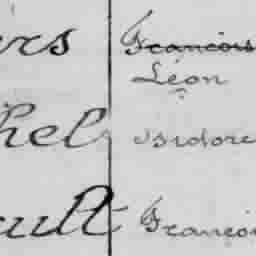 ers Francois
Léon
hel Isidore
ault Françoi